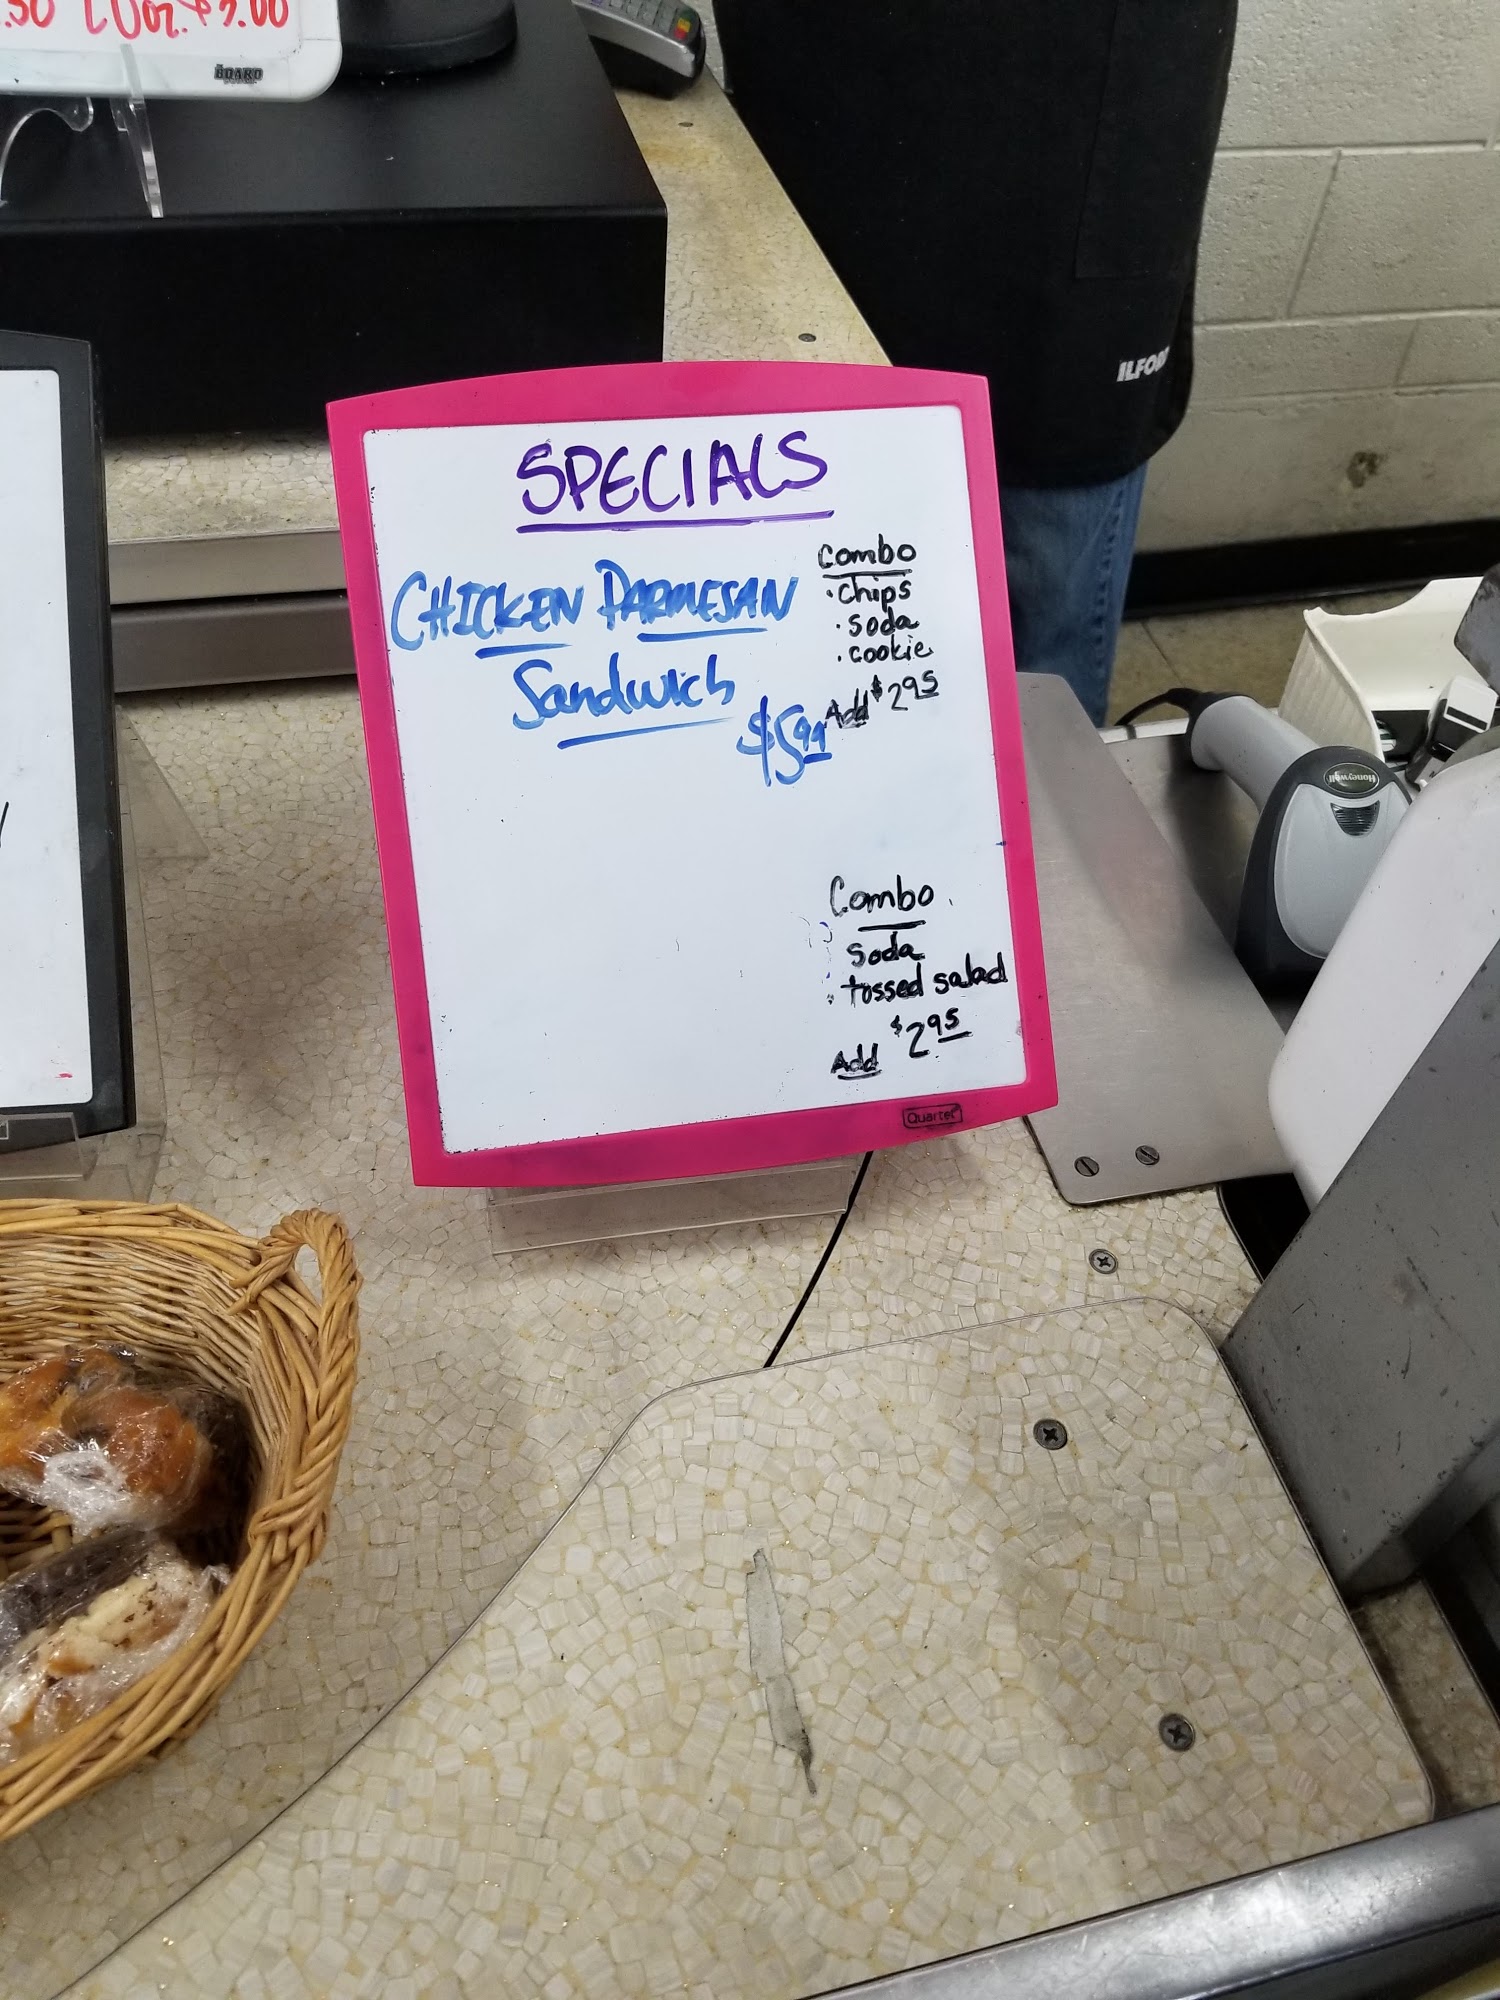 .50 20oz. $2.00
BOARD
ILFORD
SPECIALS
CHICKEN PARMESAN
Sandwich
$5.99
Combo
· Chips
· soda
· cookie
Add $2.95
Combo
soda
· tossed salad
Add $2.95
Quartet
Honeywell